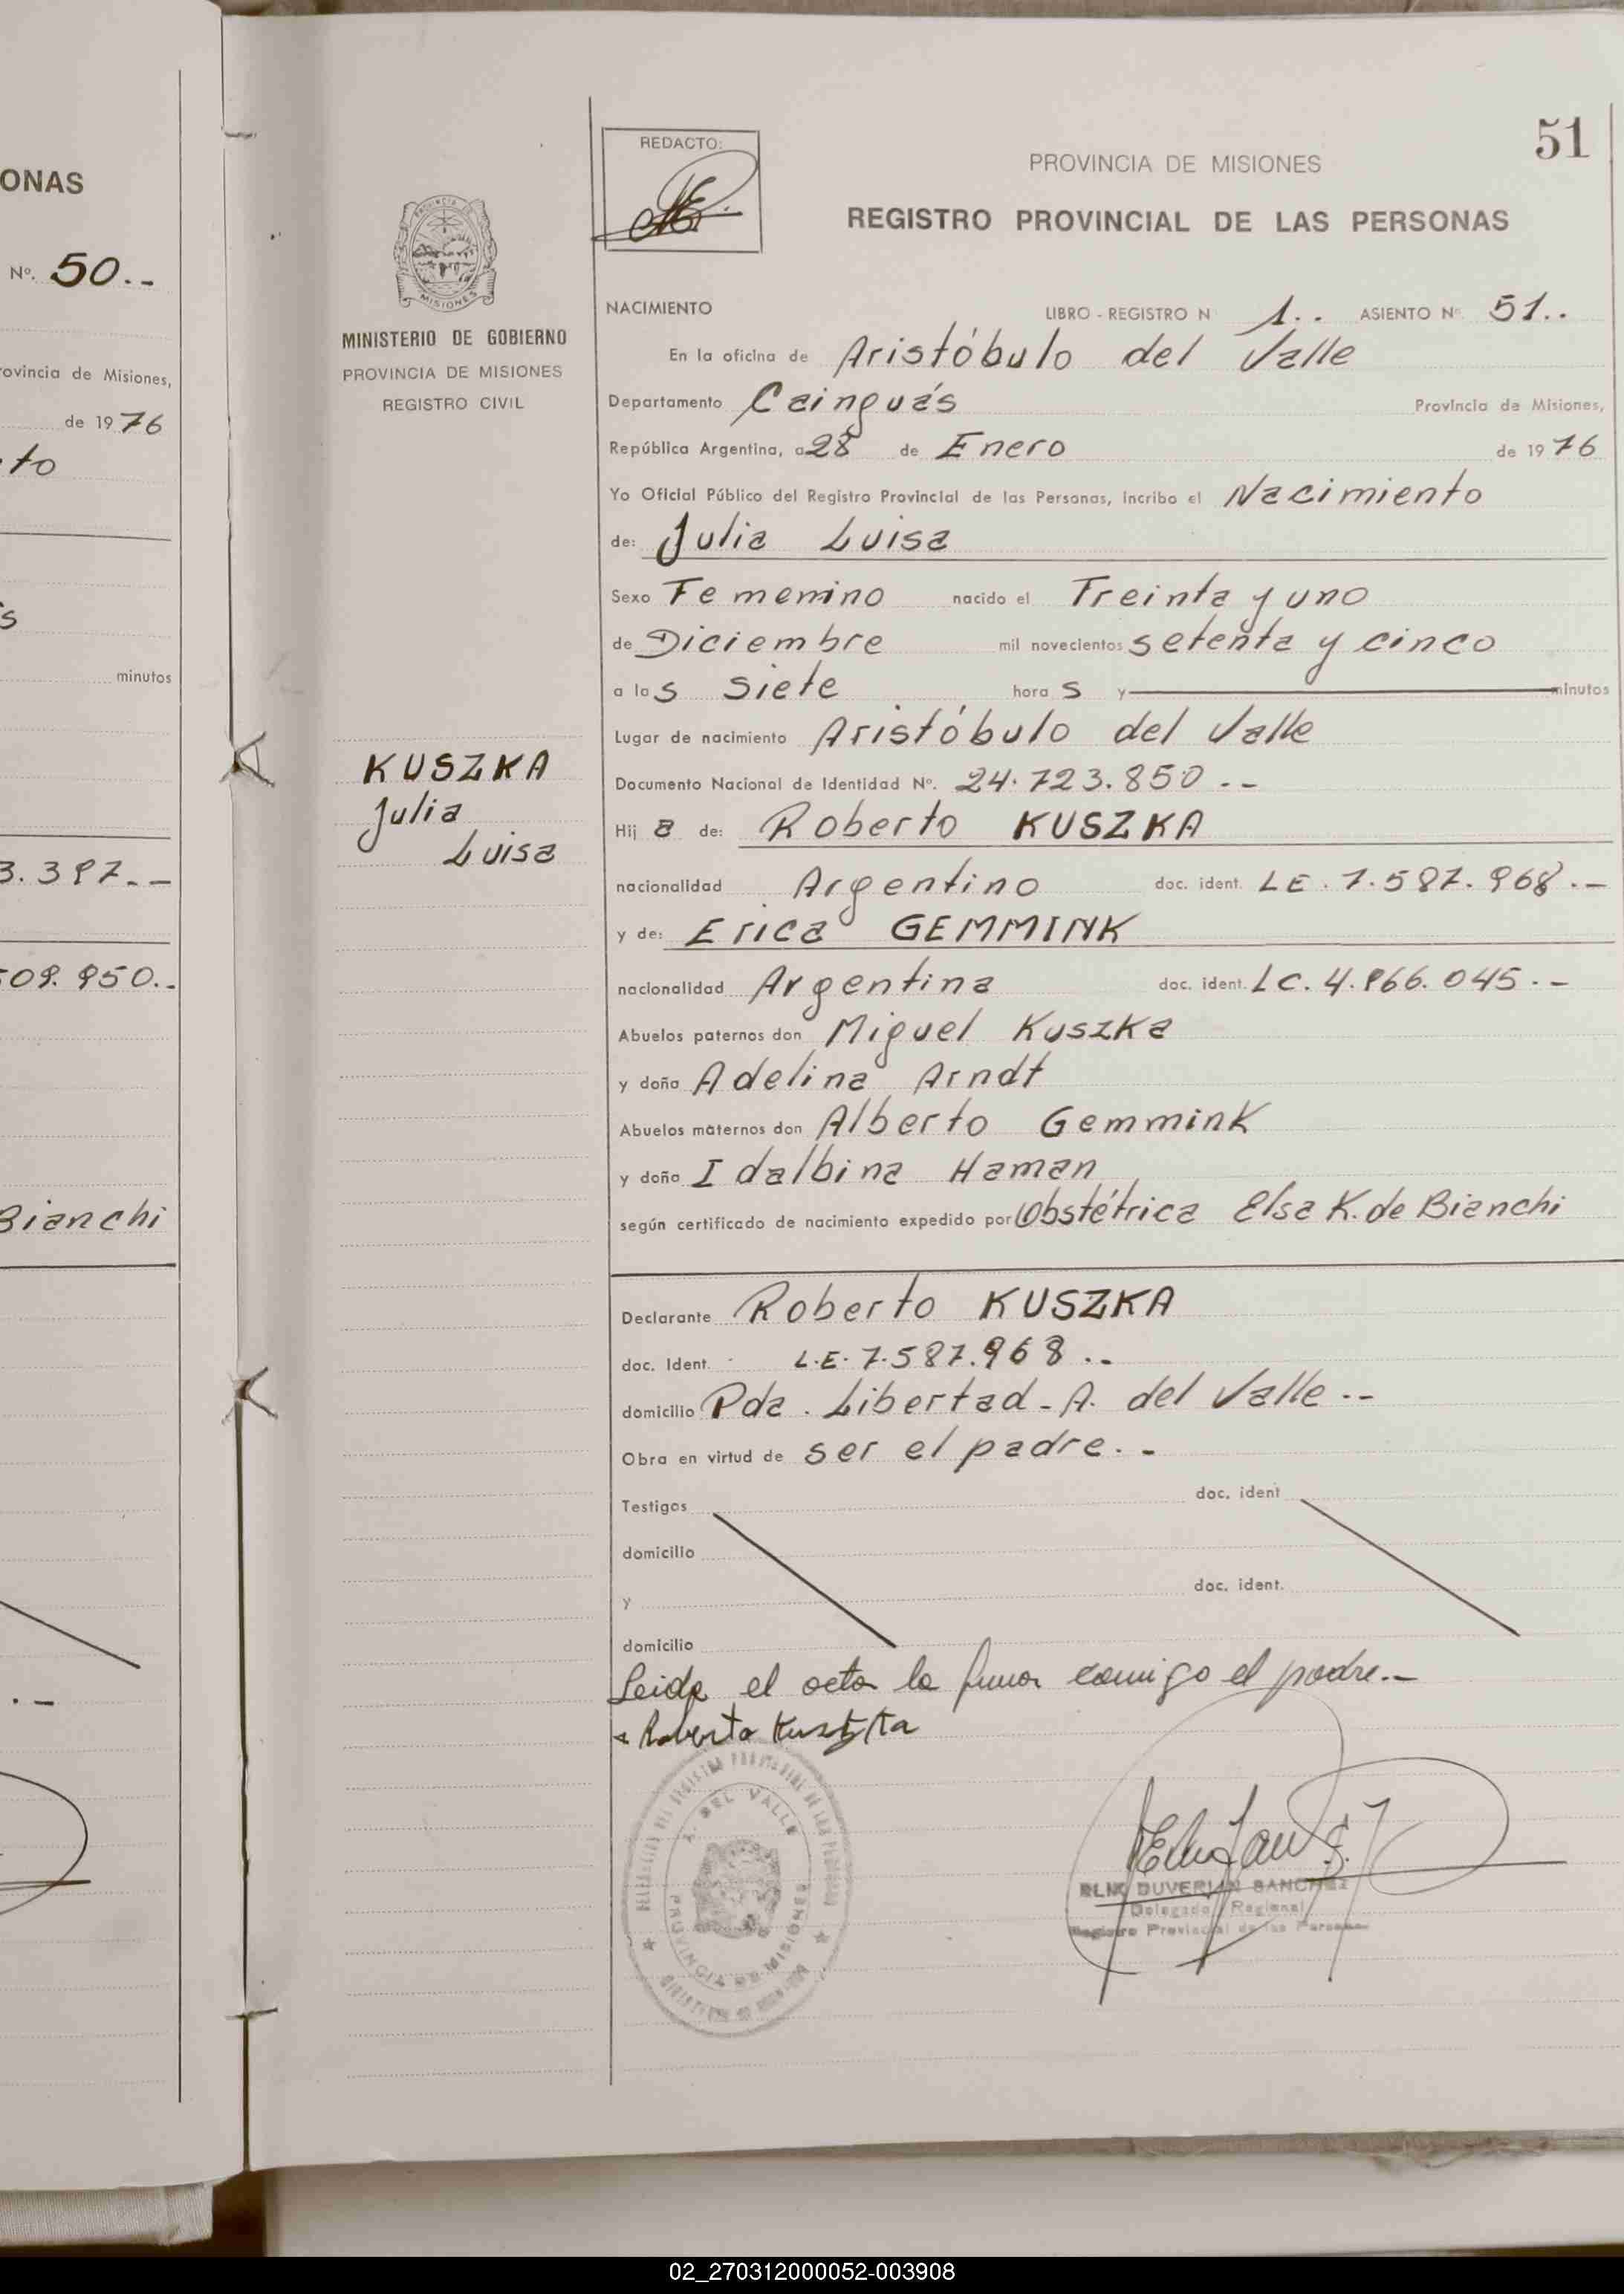 ONAS
Nº. 50.--
rovincia de Misiones,
de 1976
to
s
minutos
3.397.--
509.950.-
Bianchi
MISIONES
MINISTERIO DE GOBIERNO
PROVINCIA DE MISIONES
REGISTRO CIVIL
KUSZKA
Julia
Luisa
REDACTO:
51
PROVINCIA DE MISIONES
REGISTRO PROVINCIAL DE LAS PERSONAS
NACIMIENTO LIBRO - REGISTRO N 1.. ASIENTO Nº 51..
En la oficina de Aristóbulo del Valle
Departamento Cainguás Provincia de Misiones,
República Argentina, a 28 de Enero de 1976
Yo Oficial Público del Registro Provincial de las Personas, incribo el Nacimiento
de: Julia Luisa
Sexo Femenino nacido el Treinta y uno
de Diciembre mil novecientos setenta y cinco
a las siete horas y minutos
Lugar de nacimiento Aristóbulo del Valle
Documento Nacional de Identidad Nº. 24.723.850.--
Hija de: Roberto KUSZKA
nacionalidad Argentino doc. ident. LE. 7.587.968.--
y de: Erica GEMMINK
nacionalidad Argentina doc. ident. LC. 4.966.045.--
Abuelos paternos don Miguel Kuszka
y doña Adelina Arndt
Abuelos maternos don Alberto Gemmink
y doña Idalbina Haman
según certificado de nacimiento expedido por Obstétrica Elsa K. de Bianchi
Declarante Roberto KUSZKA
doc. Ident. L.E. 7.587.968..
domicilio Pda. Libertad - A. del Valle.--
Obra en virtud de ser el padre.--
Testigos doc. ident
domicilio
y doc. ident.
domicilio
Leida el acta la firma comigo el padre.--
Roberto Kuszka
A. DEL VALLE
PROVINCIA DE MISIONES
DUVERIAN SANCHEZ
Delegado Regional
Registro Provincial de las Personas
02_270312000052-003908